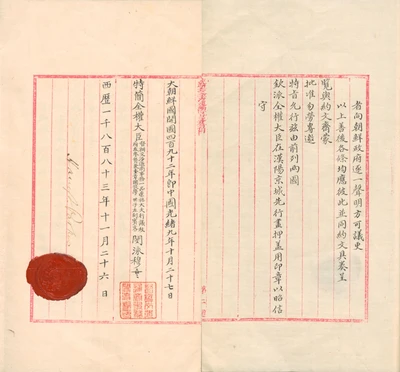 者向朝鮮政府逐一聲明方可議更
以上善後各條均應彼此並同約文具奏呈
覽與約文齊蒙
批准勿勞專邀
特旨允行茲由前列兩國
欽派全權大臣在漢陽京城先行畫押蓋用印章以昭信
守
大朝鮮國開國四百九十二年即中國光緒九年十月二十七日
特簡全權大臣閔泳穆
西曆一千八百八十三年十一月二十六日